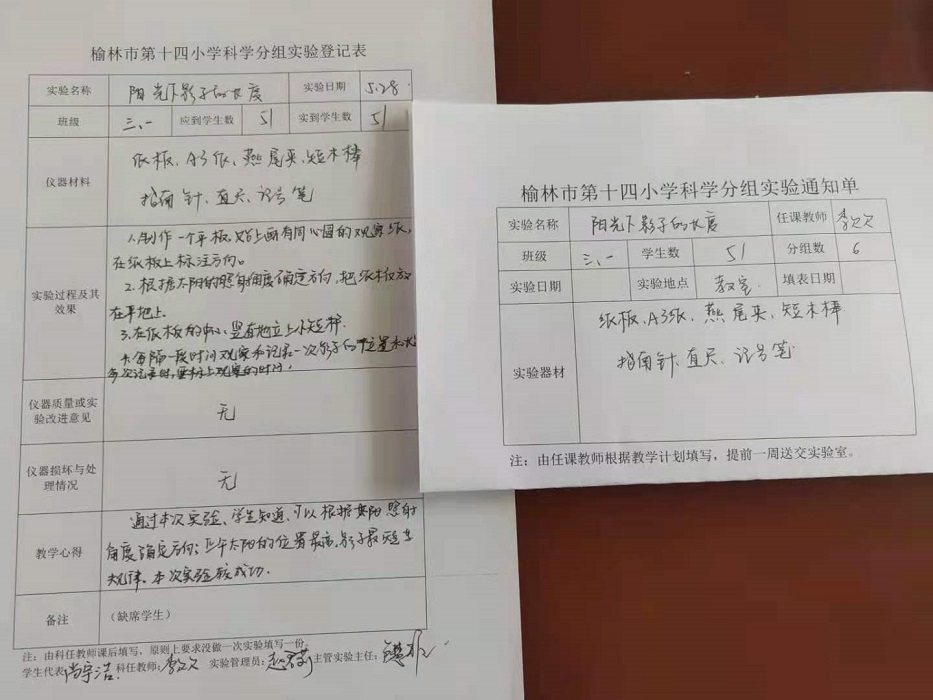 榆林市第十四小学科学分组实验登记表
实验名称 阳光下影子的长度 实验日期 5.28.
班级 三、一 应到学生数 51 实到学生数 51
仪器材料
纸板、A3纸、燕尾夹、短木棒
指南针、直尺、记号笔
实验过程及其效果
1.制作一个平板,贴上画有同心圆的观察纸,
在纸板上标注方向。
2.根据太阳的照射角度确定方向,把纸板放
在平地上。
3.在纸板的中心,竖直地立上小短棒.
4.每隔一段时间观察和记录一次影子的位置和长
每次记录时,要标上观察的时间.
仪器质量或实验改进意见 无
仪器损坏与处理情况 无
教学心得
通过本次实验、学生知道、可以根据太阳照射
角度确定方向;正午太阳的位置最高,影子最短等
规律。本次实验较成功.
备注 (缺席学生)
注:由科任教师课后填写,原则上要求没做一次实验填写一份。
学生代表:尚宇浩. 科任教师: 实验管理员: 主管实验主任:
榆林市第十四小学科学分组实验通知单
实验名称 阳光下影子的长度 任课教师
班级 三、一 学生数 51 分组数 6
实验日期 实验地点 教室. 填表日期
实验器材
纸板、A3纸、燕尾夹、短木棒
指南针、直尺、记号笔
注:由任课教师根据教学计划填写,提前一周送交实验室。